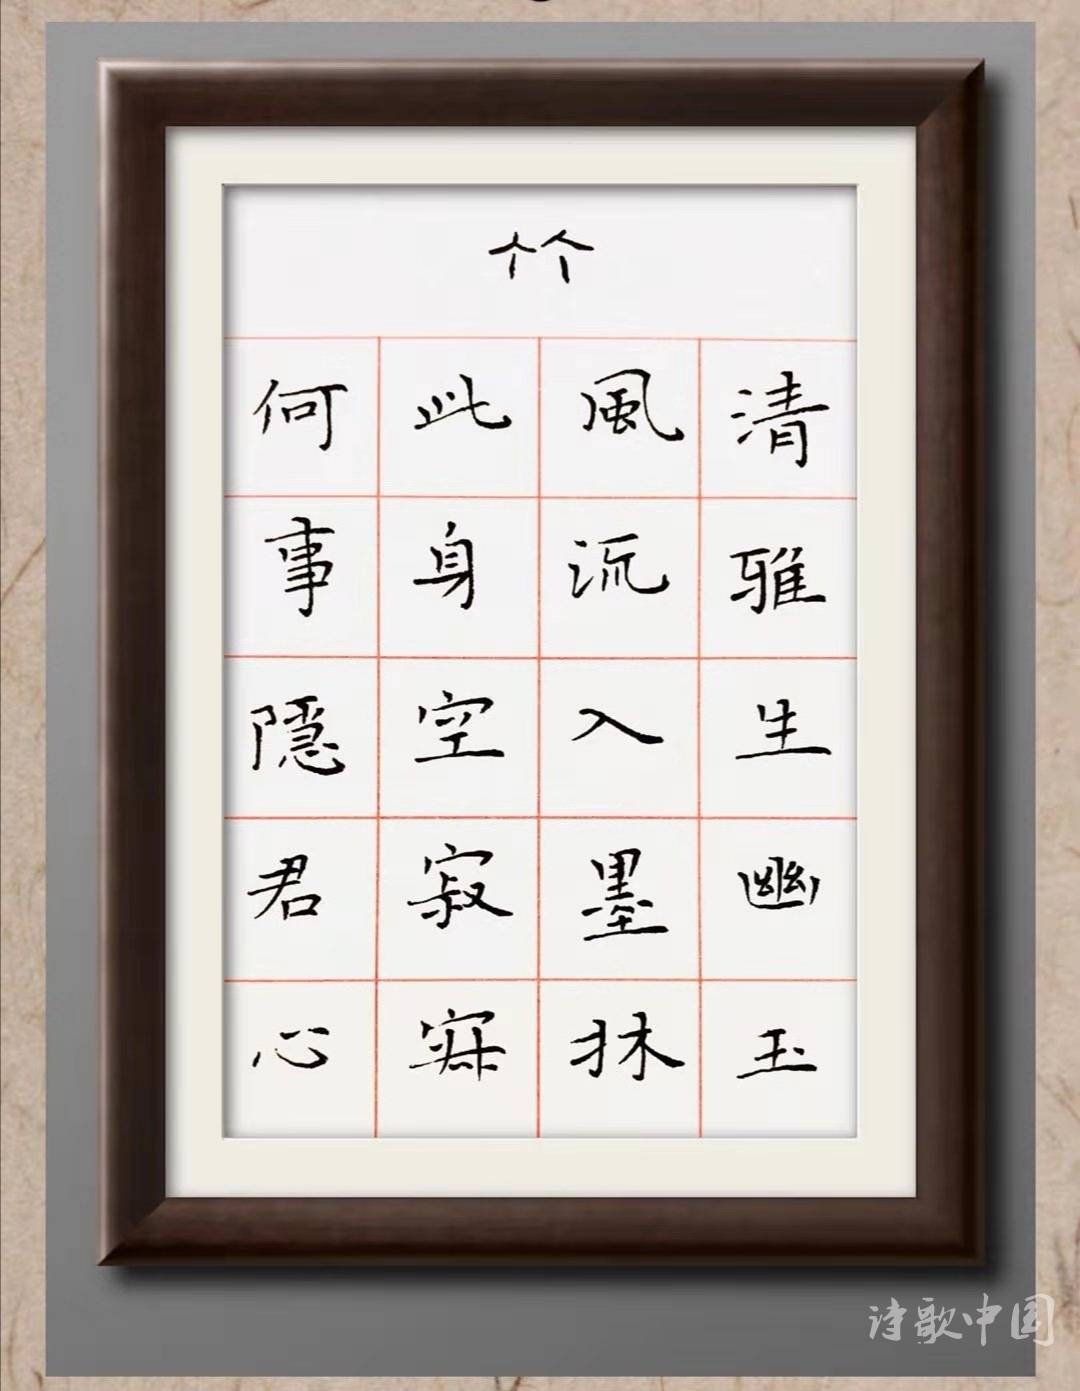 竹
清雅生幽玉
風流入墨林
此身空寂寐
何事隱君心
诗歌中国